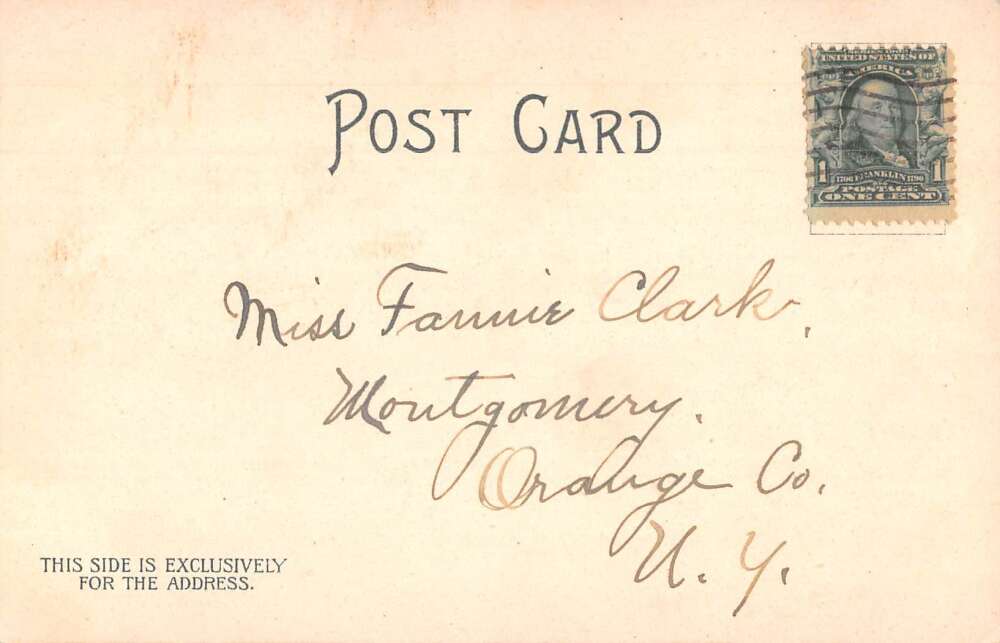 POST CARD
UNITED STATES OF
AMERICA
1 1706 FRANKLIN 1790 1
POSTAGE
ONE CENT
Miss Fannie Clark,
Montgomery.
Orange Co.
N. Y.
THIS SIDE IS EXCLUSIVELY
FOR THE ADDRESS.